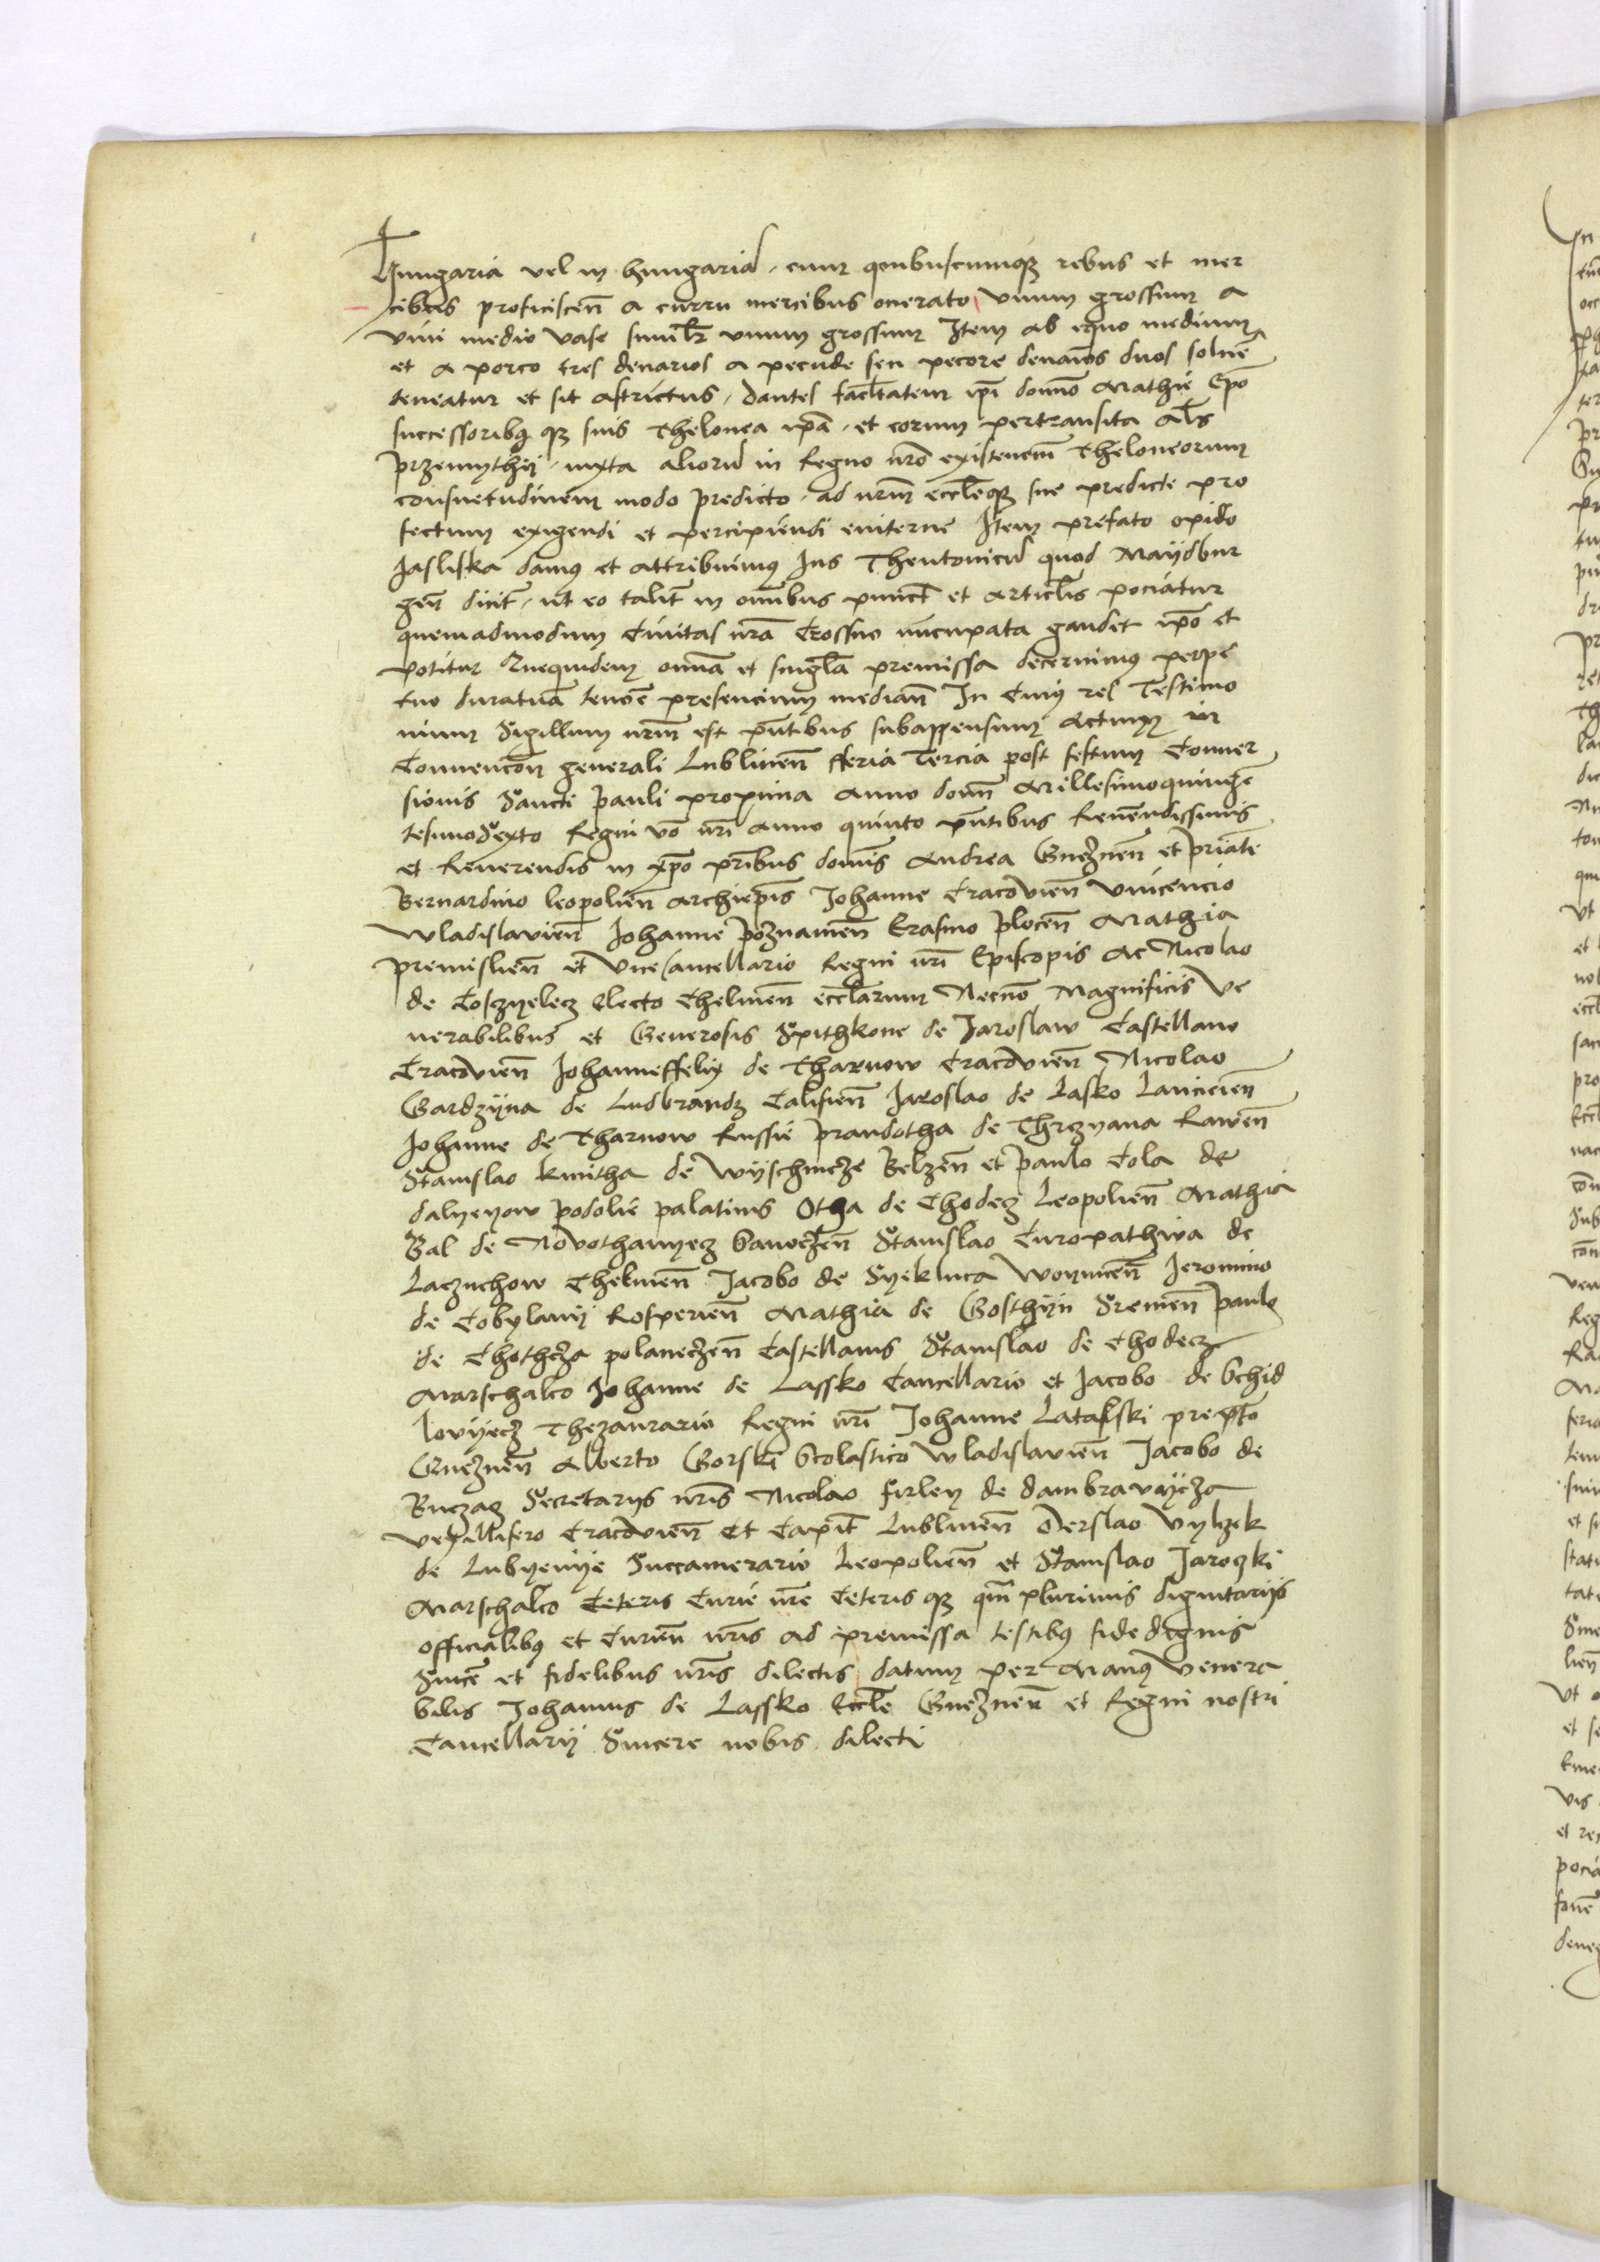 Hungaria vel in hungariam cum quibuscumqz rebus et mer
cibus proficiscen̄ a curru mercibus onerato vnum grossum a
vini medio vase simil̄r vnum grossum Item ab equo medium
et a porco tres denarios a pecude seu pecore denarios duos soluē
teneatur et sit astrictus dantes facl̄tatem ip̄i domno Mathie Ep̄o
successoribq qz suis thelonea ip̄a et eorum pertransita al̄s
przemythij iuxta aliorū in Regno nr̄o existencium theloneorum
consuetudinem modo predicto ad nr̄m eccl̄ieqz sue predicte pro
fectum exigendi et percipiendi euiterne Item prefato opido
Jasliska damus et attribuimus Jus Theutonicū quod Maÿdbur
gen̄ dicit̄ ut eo talit̄ in om̄ibus punct̄ et articl̄is pociatur
quemadmodum Ciuitas nr̄a Crossno nūcupata gaudet ip̄o et
potitur Quequidem omn̄ia et singl̄a premissa decernimus perpe
tuo duratura tenōe presencium median̄ In Cuius rei Testimo
nium Sigillum nr̄m est pn̄tibus subappensum Actum in
Conuencōn generali Lublinen̄ fferia Tercia post festum Conuer
sionis Sancti pauli proxima Anno domī Millesimoquingē
tesimoSexto Regni vō nr̄i anno quinto pn̄tibus Reuerēdissimis
et Reuerendis in xp̄o pr̄ibus domīs Andrea Gneznen̄ et priate
Bernardino leopolien̄ archiep̄is Johanne Cracouien̄ Vincencio
Wladislauien̄ Johanne poznanien̄ Erasmo plocen̄ Mathia
premislien̄ et ViceCancellario Regni nr̄i Episcopis ac Nicolao
de Coszyelecz electo Chelmen̄ eccl̄iarum Necnō Magnificis Ve
nerabilibus et Generosis Spithkone de Jaroslaw Castellano
Cracouien̄ Johanneffelix de Tharnow Cracouien̄ Nicolao
Gardzÿna de Ludbrancz Calisien̄ Jaroslao de Lasko Lancicien̄
Johanne de Tharnow Russie prandotha de Thrczyana Rawen̄
Stanislao kmitha de Wÿschnicze Belzen̄ et paulo Cola de
dalyeyow podolie palatinis Otha de Chodecz Leopolien̄ Mathia
Bal de Novothanyecz Sanoczen̄ Stanislao Curopathwa de
Laczuchow Chelmen̄ Jacobo de Syekluca Woynicen̄ Jeronimo
de Cobylanÿ Rosperien̄ Mathia de Gosthÿn Sremen̄ paulo
de Chothcza polaneczen̄ Castellanis Stanislao de Chodecz
Marschalco Johanne de Lassko Cancellario et Jacobo de Schid
lovÿecz Thezaurario Regni nr̄i Johanne Latalski prep̄to
Gneznen̄ Alberto Gorski Scolastico Wladislavien̄ Jacobo de
Buczacz Secretarÿs nr̄is Nicolao firley de dambravaÿcza
vexillifero Cracouien̄ et Capit̄ Lublinen̄ Derslao Vylzek
de Lubyenÿe Succamerario Leopolien̄ et Stanislao Jaroczki
Marschalco Ceteris Curie nr̄e Ceteris qz qm̄ plurimis dignitarÿs
officialibq et Curien̄ nr̄is ad premissa testibq fidedignis
Sincē et fidelibus nr̄is dilectis datum per Manq Venera
bilis Johannis de Lassko Eccl̄ie Gneznen̄ et Regni nostri
Cancellarÿ Sincere nobis dilecti